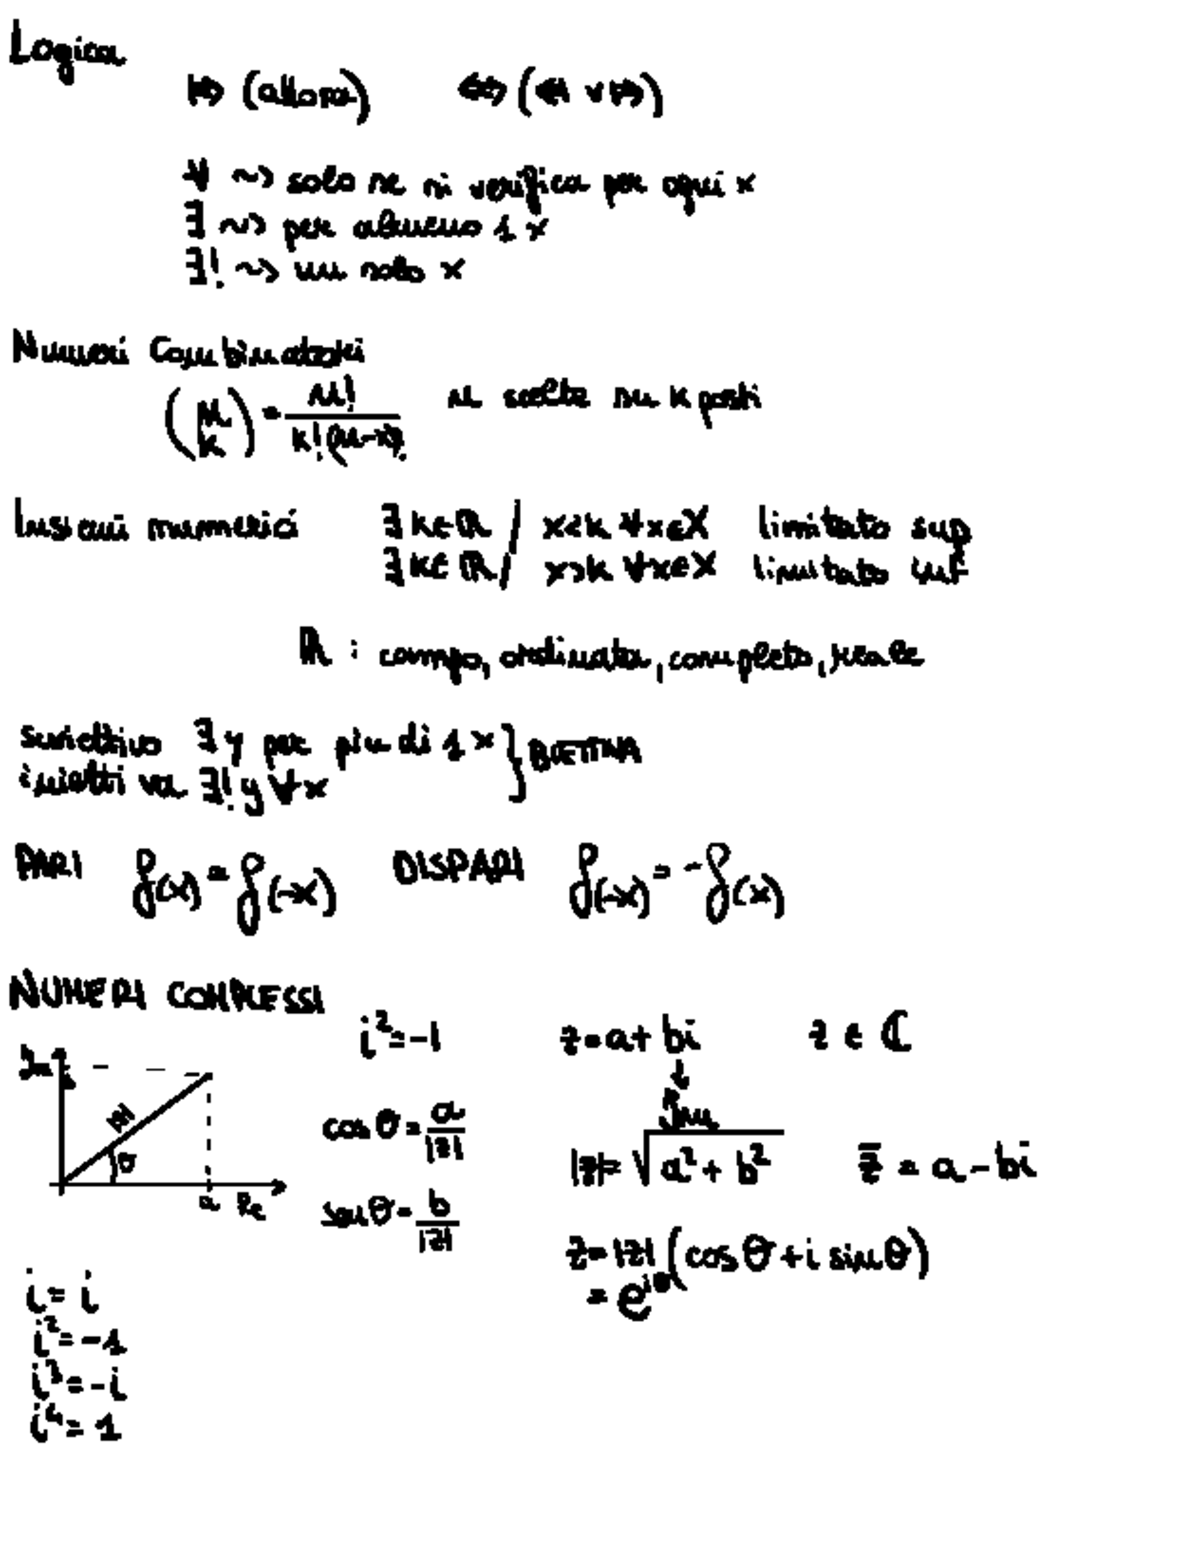 Logica
⇒ (allora) ⇔ (⇐ ∨ ⇒)
∀ ~> solo se si verifica per ogni x
∃ ~> per almeno 1 x
∃! ~> un solo x
Numeri Combinatori
(n k) = n! / k!(n-k)! n scelte su k posti
Insiemi numerici ∃ k∈ℝ / x≤k ∀x∈X limitato sup
∃ k∈ℝ / x≥k ∀x∈X limitato inf
ℝ : campo, ordinato, completo, reale
suriettivo ∃ y per più di 1 x } BIETTIVA
iniettiva ∃! y ∀x
PARI f(x) = f(-x) DISPARI f(-x) = -f(x)
NUMERI COMPLESSI
i² = -1 z = a + bi z ∈ ℂ
Im
Im b
|z|
θ
a Re
cos θ = a/|z| |z| = √(a² + b²) z̄ = a - bi
sen θ = b/|z|
z = |z| (cos θ + i sin θ)
= e^iθ
i = i
i² = -1
i³ = -i
i⁴ = 1